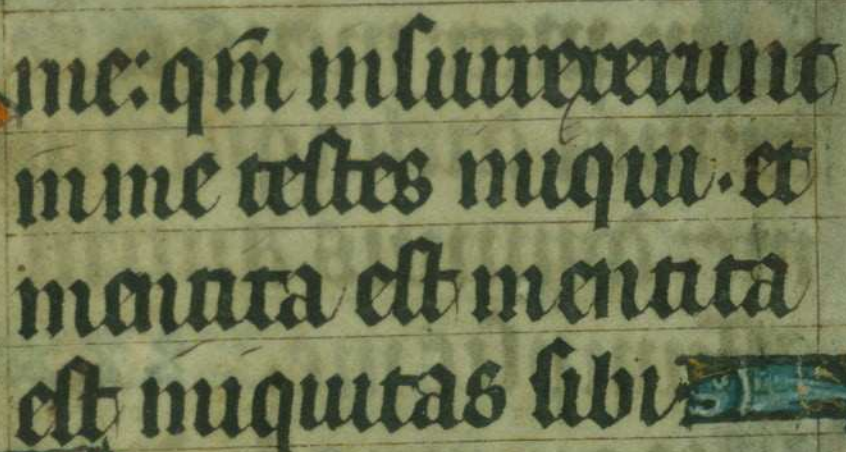 me: qm̄ insurrexerunt
in me testes iniqui. et
mentita est mentita
est iniquitas sibi